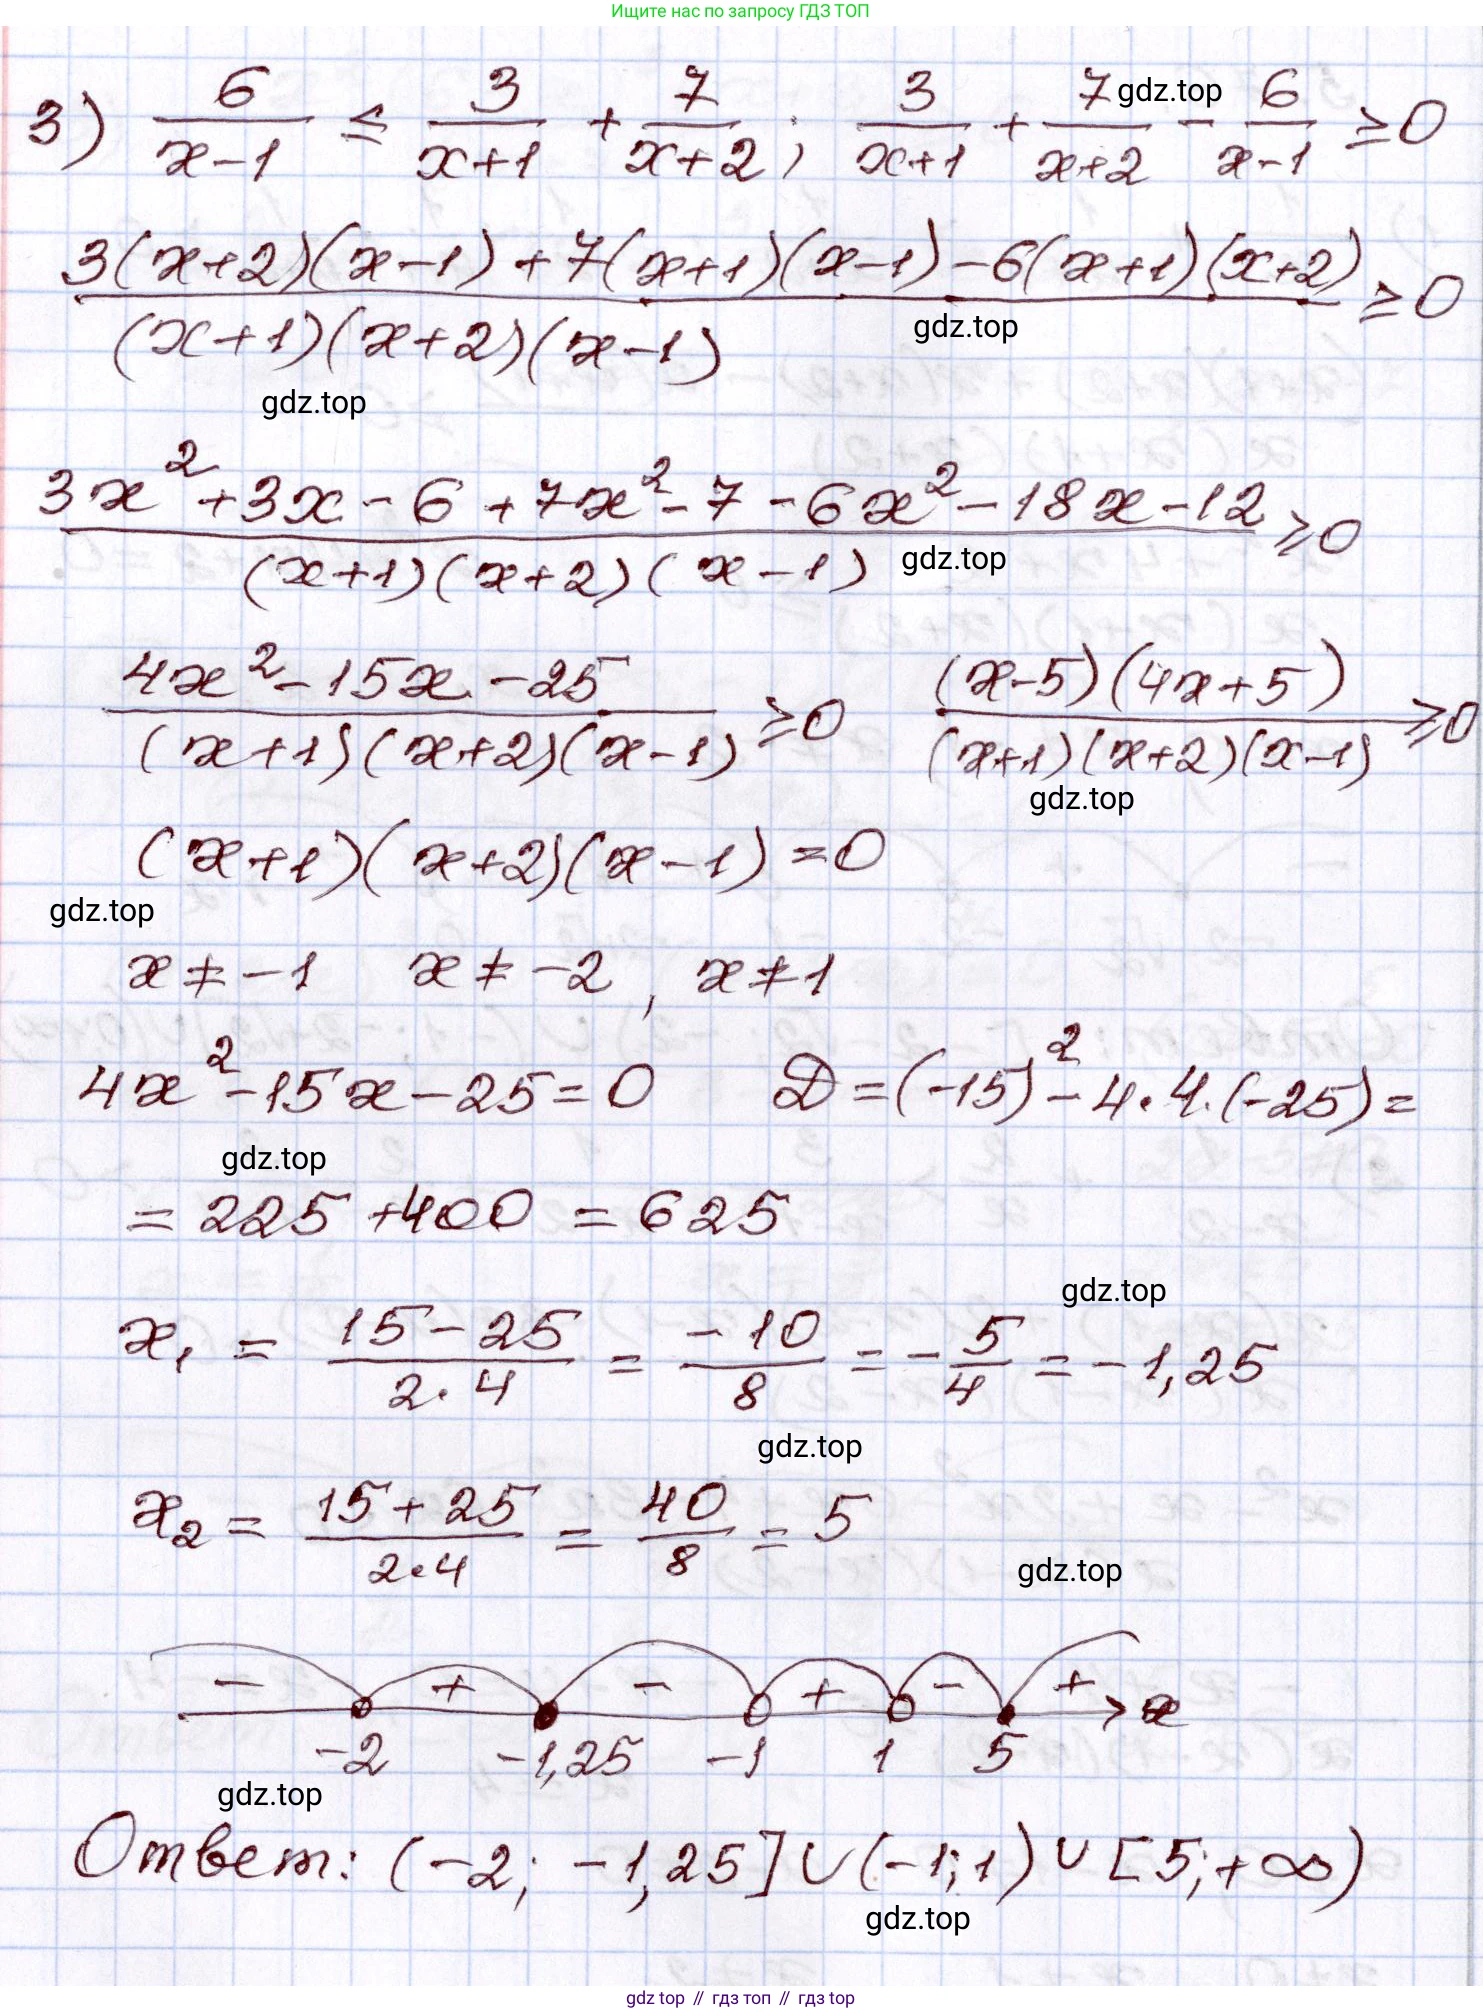 Ищите нас по запросу ГДЗ ТОП
3) 6/(x-1) ≤ 3/(x+1) + 7/(x+2); 3/(x+1) + 7/(x+2) - 6/(x-1) ≥ 0
gdz.top
(3(x+2)(x-1)+7(x+1)(x-1)-6(x+1)(x+2))/((x+1)(x+2)(x-1)) ≥ 0
gdz.top
gdz.top
(3x²+3x-6+7x²-7-6x²-18x-12)/((x+1)(x+2)(x-1)) ≥ 0
gdz.top
(4x²-15x-25)/((x+1)(x+2)(x-1)) ≥ 0 ((x-5)(4x+5))/((x+1)(x+2)(x-1)) ≥ 0
gdz.top
(x+1)(x+2)(x-1)=0
gdz.top
x≠-1 x≠-2, x≠1
4x²-15x-25=0 D=(-15)²-4·4·(-25)=
gdz.top
=225+400=625
gdz.top
x₁ = (15-25)/(2·4) = -10/8 = -5/4 = -1,25
gdz.top
x₂ = (15+25)/(2·4) = 40/8 = 5
gdz.top
- + - + - + x
-2 -1,25 -1 1 5
gdz.top
Ответ: (-2; -1,25]∪(-1;1)∪[5;+∞)
gdz.top
gdz top // гдз топ // gdz top